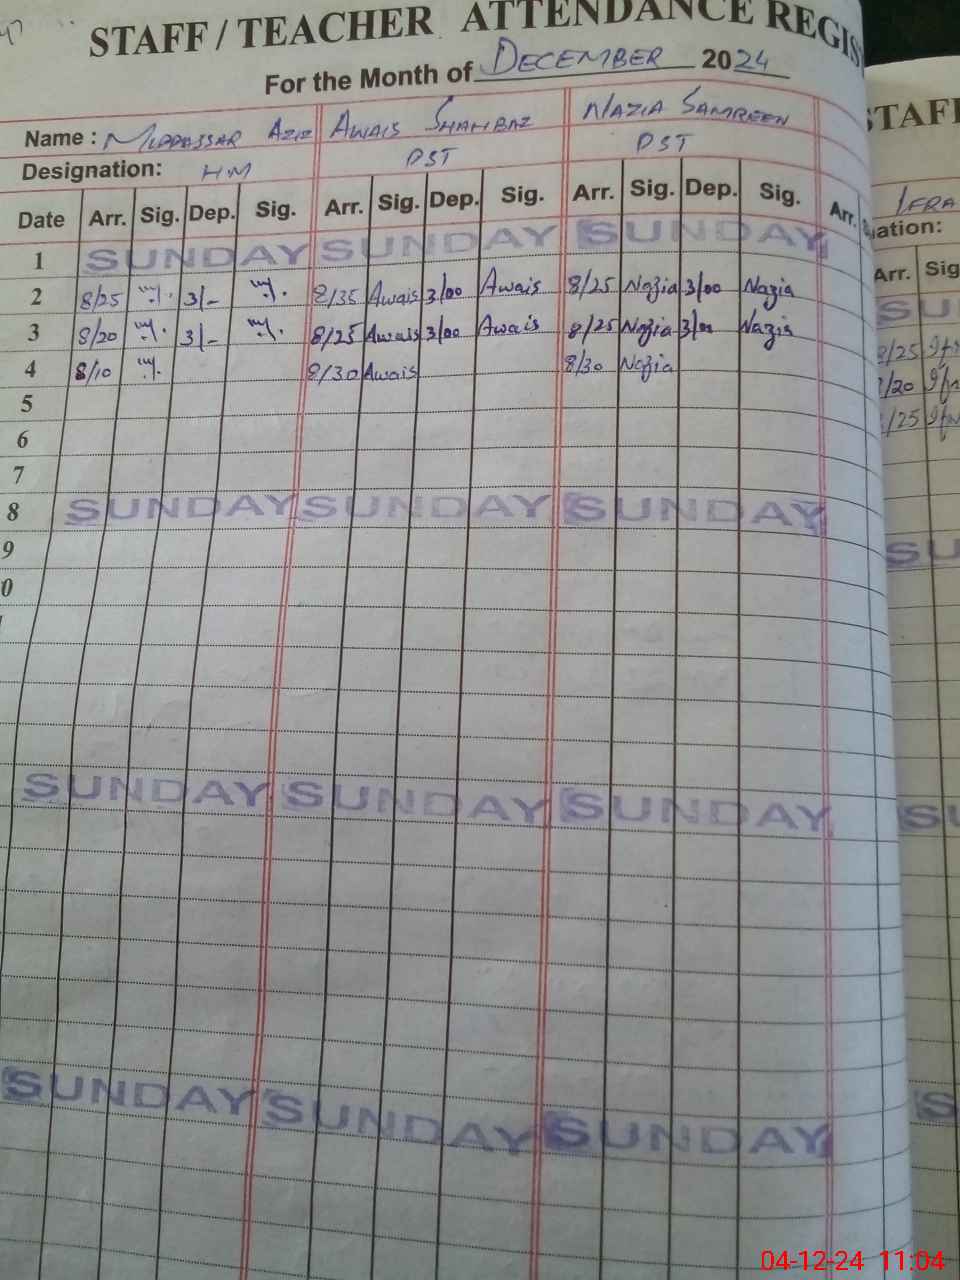 STAFF / TEACHER ATTENDANCE REGIS
For the Month of DECEMBER 2024
Name : MUDDASSAR AZIZ AWAIS SHAHBAZ NAZIA SAMREEN
Designation: HM PST PST
Date Arr. Sig. Dep. Sig. Arr. Sig. Dep. Sig. Arr. Sig. Dep. Sig. Arr.
1 SUNDAY SUNDAY SUNDAY
2 8/25 3/- 8/35 Awais 3/00 Awais 8/25 Nazia 3/00 Nazia
3 8/20 3/- 8/25 Awais 3/00 Awais 8/25 Nazia 3/00 Nazia
4 8/10 8/30 Awais 8/30 Nazia
5
6
7
8 SUNDAY SUNDAY SUNDAY
9
0
SUNDAY SUNDAY SUNDAY
SUNDAY SUNDAY SUNDAY
STAF
IFRA
uation:
Arr. Sig
SU
8/25 Ifr
/20 Ifr
/25 Ifr
SU
SU
S
04-12-24 11:04